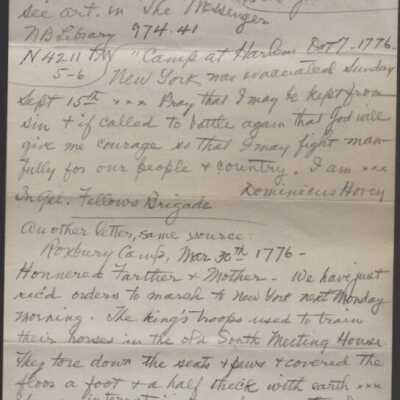 see art. in The Messenger
NB Library 974.41
N4211 "Camp at Harlem Oct 7-1776.
5-6) New York was evacuated Sunday
Sept 15th xxx Pray that I may be kept from
sin & if called to battle again that God will
give me courage so that I may fight man
fully for our people & country. I am xxx
Dominicus Hovey
In Gel. Fellows Brigade
Another letter, same source.
Roxbury Camp, Mar 30th 1776-
Honnered Farther & Mother - We have just
rec'd orders to march to New York next Monday
morning. The king's troops used to train
their horses in the old South Meeting House
They tore down the seats & pews & covered the
floor a foot & a half theck with earth xxx